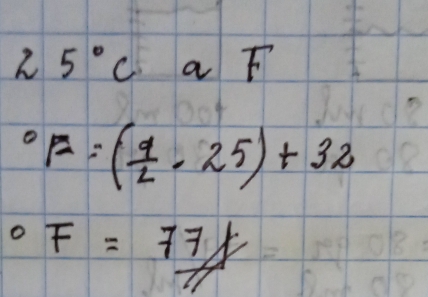 25°C a F
°F = (9/2 . 25) + 32
°F = 77